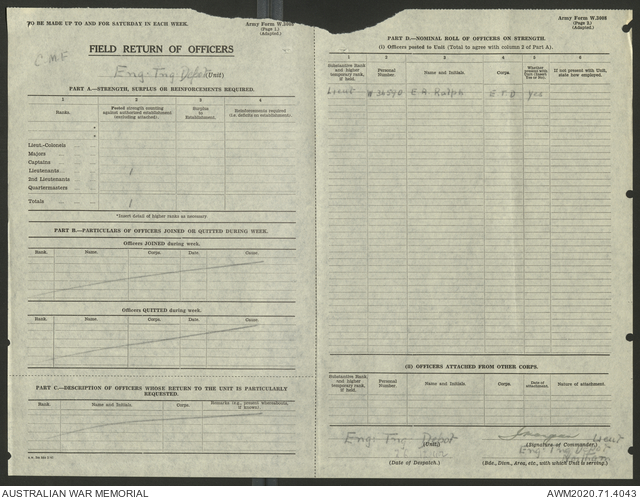 TO BE MADE UP TO AND FOR SATURDAY IN EACH WEEK.
Army Form W.3008
(Page 1.)
(Adapted.)
C.M.F
FIELD RETURN OF OFFICERS
Eng: Tng Depot (Unit)
PART A.—STRENGTH, SURPLUS OR REINFORCEMENTS REQUIRED.
1 2 3 4
Ranks. Posted strength counting against authorized establishment (excluding attached). Surplus to Establishment. Reinforcements required (i.e. deficits on establishment).
*
*
Lieut.-Colonels
Majors
Captains
Lieutenants 1
2nd Lieutenants
Quartermasters
Totals 1
*Insert detail of higher ranks as necessary
PART B.—PARTICULARS OF OFFICERS JOINED OR QUITTED DURING WEEK.
Officers JOINED during week.
Rank. Name. Corps. Date. Cause.
Officers QUITTED during week.
Rank. Name. Corps. Date. Cause.
PART C.—DESCRIPTION OF OFFICERS WHOSE RETURN TO THE UNIT IS PARTICULARLY REQUESTED.
Rank. Name and Initials. Corps. Remarks (e.g., present whereabouts, if known).
Army Form W.3008
(Page 2.)
(Adapted.)
PART D.—NOMINAL ROLL OF OFFICERS ON STRENGTH.
(I) Officers posted to Unit (Total to agree with column 2 of Part A).
1 2 3 4 5 6
Substantive Rank and higher temporary rank, if held. Personal Number. Name and Initials. Corps. Whether present with Unit (Insert Yes or No). If not present with Unit, state how employed.
Lieut E.A. Ralph E.T.D Yes
(II) OFFICERS ATTACHED FROM OTHER CORPS.
Substantive Rank and higher temporary rank, if held. Personal Number. Name and Initials. Corps. Date of attachment. Nature of attachment.
Eng: Tng Depot Lieut
(Unit) (Signature of Commander.)
Eng: Tng Depot
(Date of Despatch). (Bde., Divn., Area, etc., with which Unit is serving.)
AUSTRALIAN WAR MEMORIAL
AWM2020.71.4043